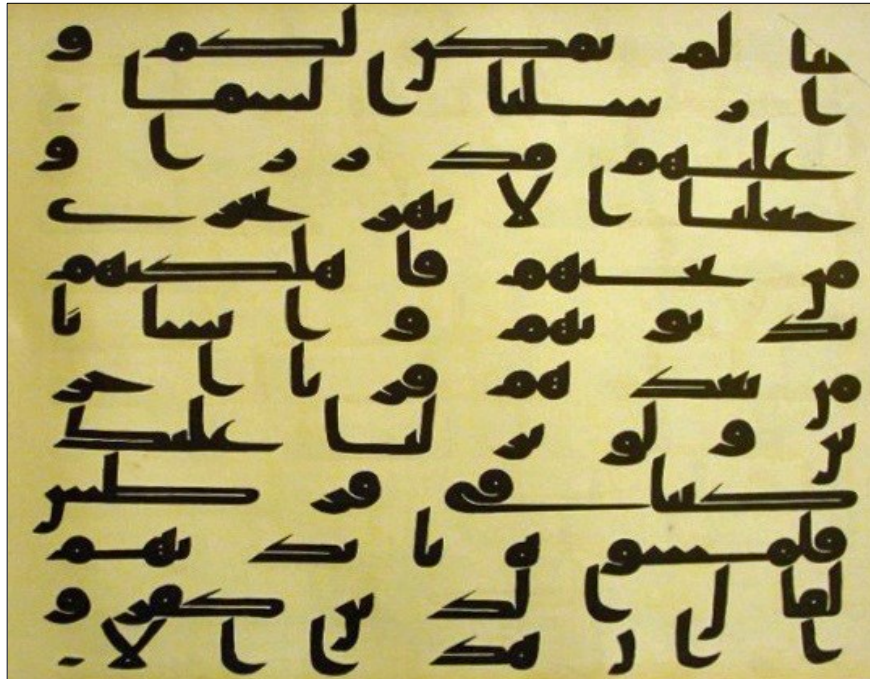 ما لم نمكن لكم و
ارسلنا السما
عليهم مدررا و
جعلنا الانهر تجري
من تحتهم فاهلكنهم
بذنوبهم وانشانا
من بعدهم قرنا اخر
ين ولو نزلنا عليك
كتبا في قرطس
فلمسوه بايديهم
لقال الذين كفرو
ا ان هذا الا